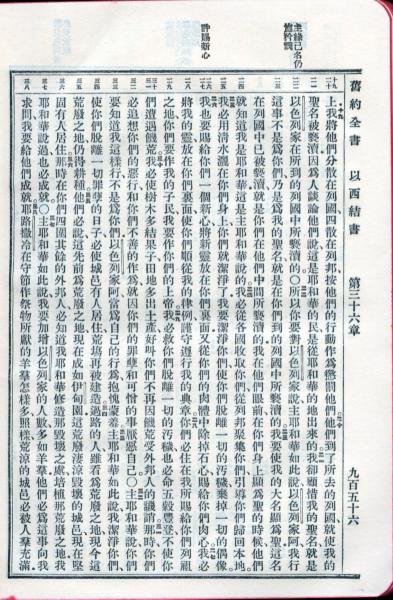 舊約全書 以西結書 第三十六章 九百五十六
主緣己名仍
舊矜憫
許賜新心
上我將他們分散在列國四散在列邦按他們的行動作爲懲罰他們他們到了所去的列國就使我的
聖名被褻瀆因爲人談論他們說這是耶和華的民是從耶和華的地出來的我卻顧惜我的聖名就是
以色列家在所到的列國中所褻瀆的〇所以你要對以色列家說主耶和華如此說以色列家阿我行
這事不是爲你們乃是爲我的聖名就是在你們到的列國中所褻瀆的我要使我的大名顯爲聖這名
在列國中已被褻瀆就是你們在他們中間所褻瀆的我在他們眼前在你們身上顯爲聖的時候他們
就知道我是耶和華這是主耶和華說的我必從各國收取你們從列邦聚集你們引導你們歸回本地
我必用清水灑在你們身上你們就潔淨了我要潔淨你們使你們脫離一切的污穢棄掉一切的偶像
我也要賜給你們一個新心將新靈放在你們裏面又從你們的肉體中除掉石心賜給你們肉心我必
將我的靈放在你們裏面使你們順從我的律例謹守遵行我的典章你們必住在我所賜給你們列祖
之地你們要作我的子民我要作你們的上帝我必救你們脫離一切的污穢也必命五穀豐登不使你
們遭遇饑荒我必使樹木多結果子田地多出土產好叫你們不再因饑荒受外邦人的譏誚那時你們
必追想你們的惡行和你們不善的作爲就因你們的罪孽和可憎的事厭惡自己〇主耶和華說你們
要知道我這樣行不是爲你們以色列家阿當爲自己的行爲抱愧蒙羞主耶和華如此說我潔淨你們
使你們脫離一切罪孽的日子必使城邑有人居住荒場再被建造過路的人雖看爲荒廢之地現今這
荒廢之地仍得耕種他們必說這先前爲荒廢之地現在成如伊甸園這荒廢凄涼毀壞的城邑現在堅
固有人居住那時在你們四圍其餘的外邦人必知道我耶和華修造那毀壞之處培植那荒廢之地我
耶和華說過也必成就〇主耶和華如此說我要加增以色列家的人數多如羊羣他們必爲這事向我
求問我要給他們成就耶路撒冷在守節作祭物所獻的羊羣怎樣多照樣荒涼的城邑必被人羣充滿